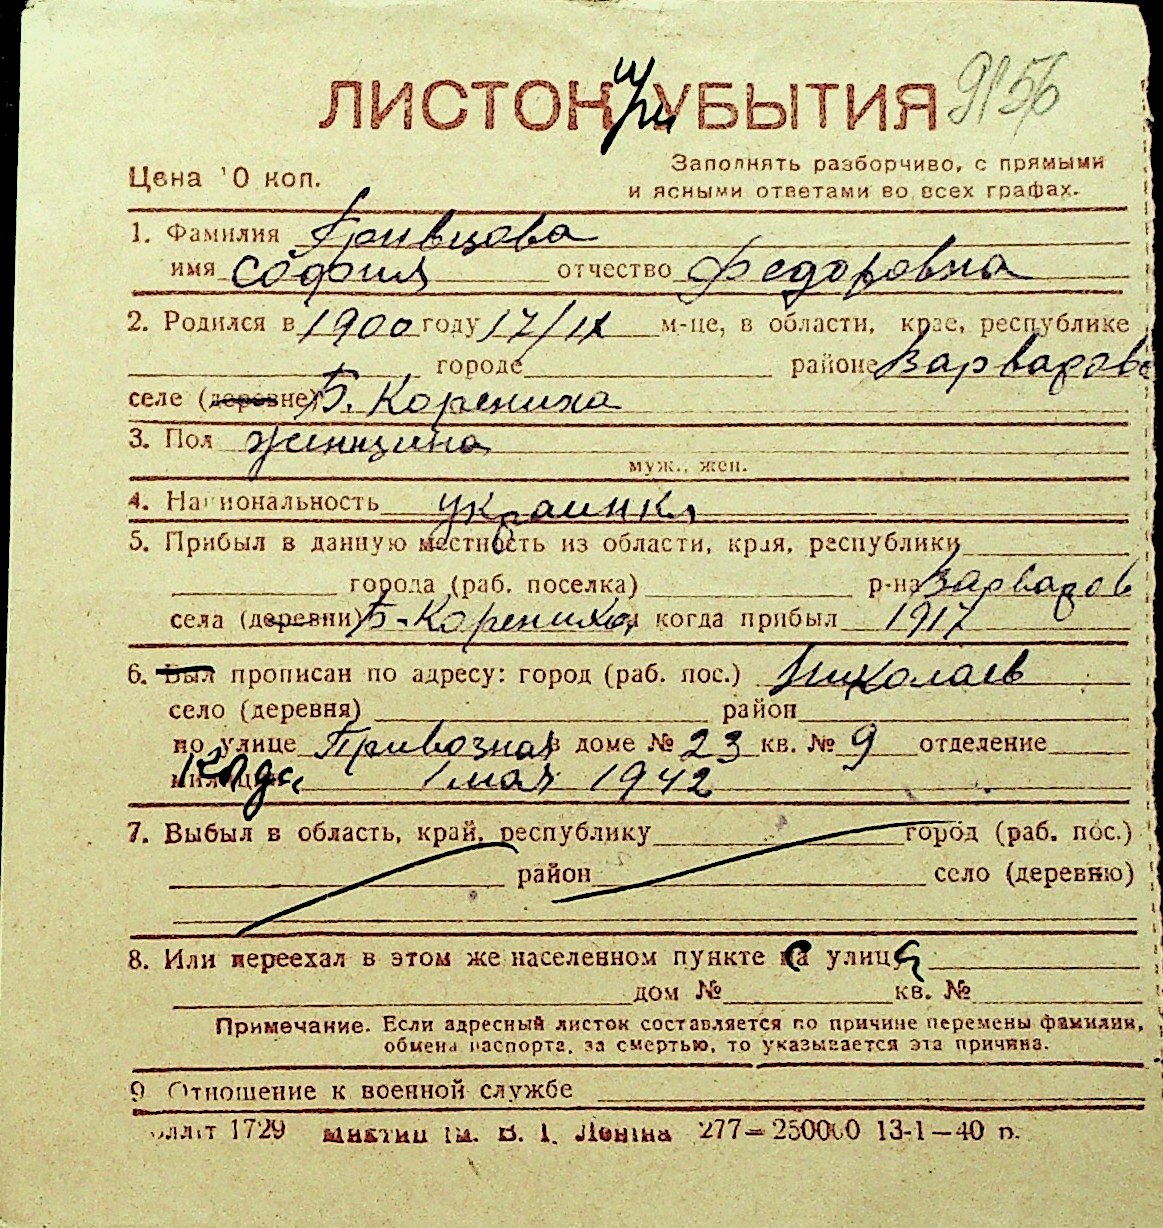 ЛИСТОК УБЫТИЯ 9156
при
Цена 10 коп.
Заполнять разборчиво, с прямыми
и ясными ответами во всех графах.
1. Фамилия Кривцова
имя София отчество Федоровна
2. Родился в 1900 году 17/IX м-це, в области, крае, республике
городе районе Варваровс
селе (деревне) Б. Корениха
3. Пол женщина
муж., жен.
4. Национальность украинка
5. Прибыл в данную местность из области, края, республики
города (раб. поселка) р-на Варваров
села (деревни) Б. Корениха и когда прибыл 1917
6. Был прописан по адресу: город (раб. пос.) Николаев
село (деревня) район
по улице Привозная в доме № 23 кв. № 9 отделение
милиции когда 1 мая 1942
7. Выбыл в область, край, республику город (раб. пос.)
район село (деревню)
8. Или переехал в этом же населенном пункте с улиця
дом № кв. №
Примечание. Если адресный листок составляется по причине перемены фамилии,
обмена паспорта, за смертью, то указывается эта причина.
9 Отношение к военной службе
1729 ім. В. І. Леніна 277—250000 13-1—40 р.